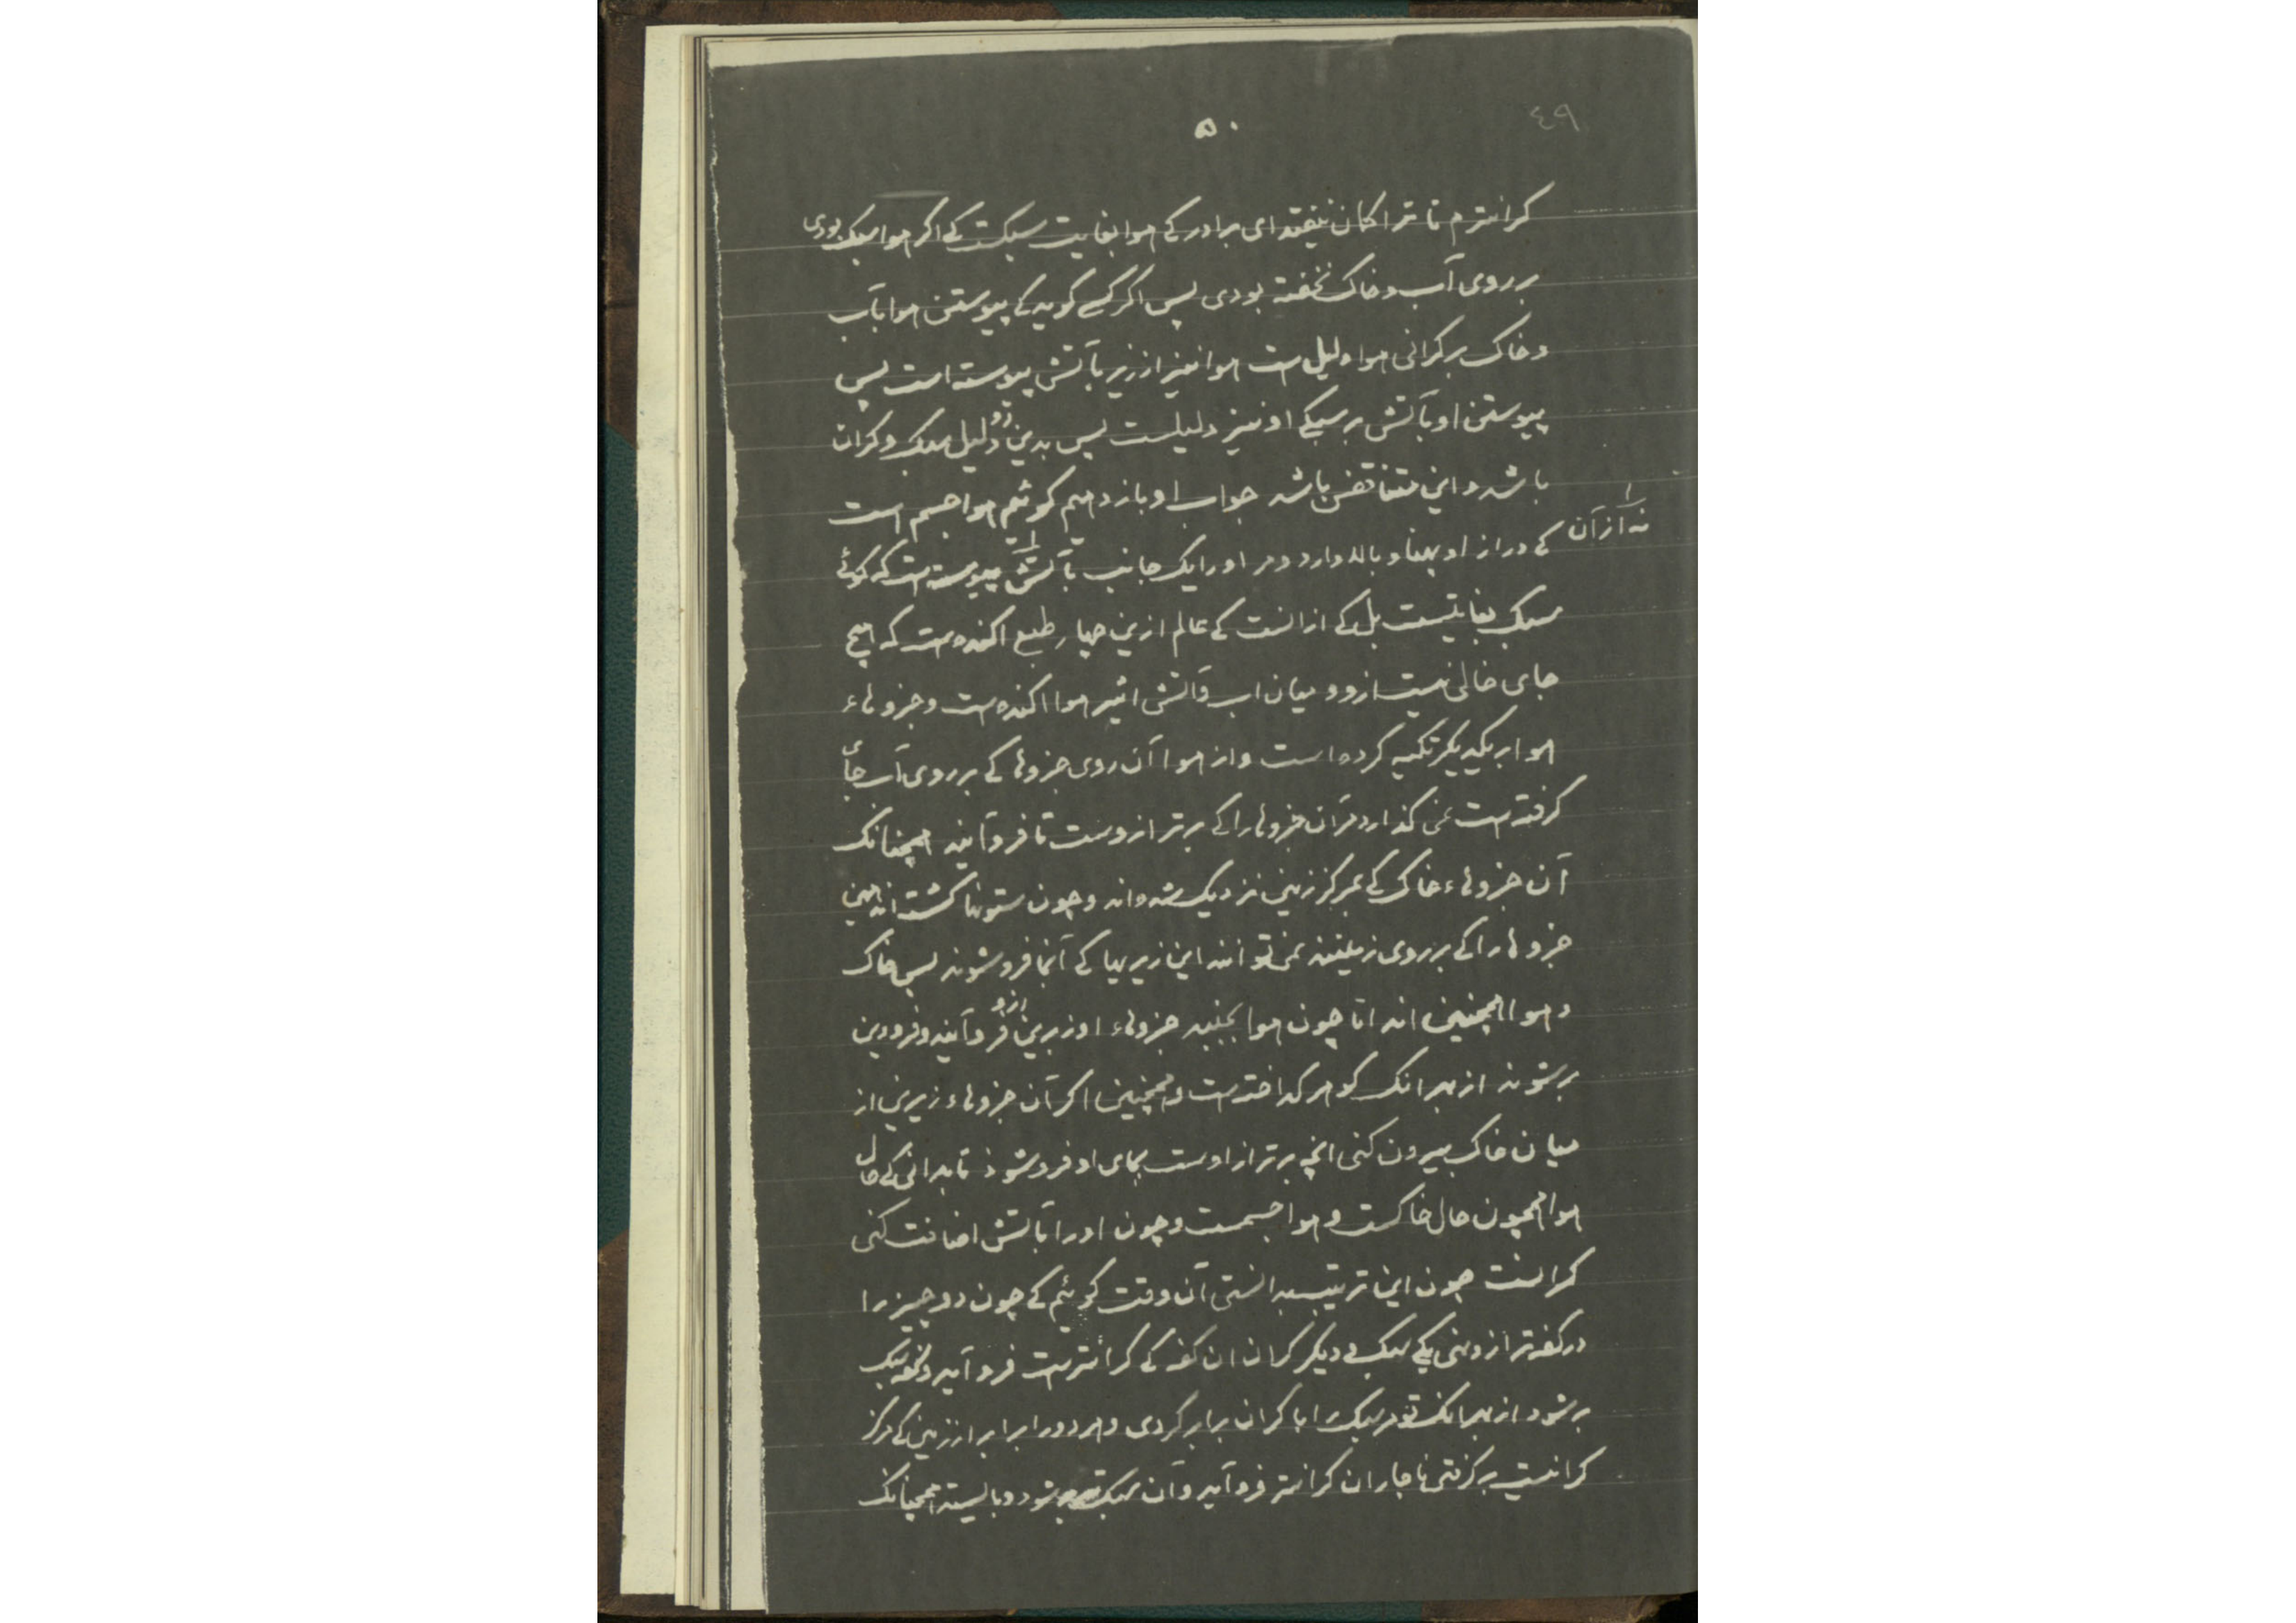 ۴۹
۵۰
کرانترم تا ترا کمان نیفتد ای برادر کے هوا بغایت سبکست کے اکر هوا سبک بودی
بر روی آب و خاک نخفته بودی پس اکر کسے کوید کے پیوستن هوا بآب
و خاک بر کرانی هوا دلیل است هوا نیز از زیر بآتش پیوسته است پس
پیوستن او بآتش بر سبکے او نیز دلیلست پس بدین دو دلیل سبک و کران
باشد و این متناقض باشد جواب او باز دهیم کوئیم هوا جسم است
کے دراز او پهنا و بالا دارد و مر او را یک جانب بآتش پیوسته است نه از آن که کوئے
سبک بغایتیست بل کے از انست کے عالم ازین چهار طبع اکنده است که هیچ
جای خالی نیست ازو و میان اب و آتش اثیر هوا اکنده است و جزوهاء
هوا بر یکدیکر تکیه کرده است و از هوا آن روی جزوها کے بر روی آب جای
کرفته است نمی کذارد مر آن جزوها را کے برتر ازوست تا فرو آیند همچنانک
آن جزوهاء خاک کے بمرکز زمین نزدیک شده اند و چون ستونها کشته اند همین
جزوها را کے بر روی زمینند نمی توانند این زیریها کے آنجا فرو شوند پس خاک
و هوا همچنین اند اما چون هوا بجنبد جزوهاء او زبرین ازو فرو آیند و فرودین
بر شوند از بهر انک کوهر کداخته است و همچنین اکر آن جزوهاء زیرین از
میان خاک بیرون کنی انچه برتر از اوست بجای او فرو شوذ تا بدانی کے حال
هوا همچون حال خاکست و هوا جسمست و چون او را بآتش اضافت کنی
کرانست چون این ترتیب بدانستی آن وقت کوئیم کے چون دو چیز را
در کفه ترازو نهی یکے سبک و دیکر کران ان کفه کے کرانترست فرو آید و کفه سبک
بر شود از بهر انک تو مر سبک را با کران برابر کردی و هر دو را برابر از زمین کے مرکز
کرانیست بر کرفتی ناچار ان کرانتر فرو آید و آن سبک تر بر شود و بایستد همچنانک